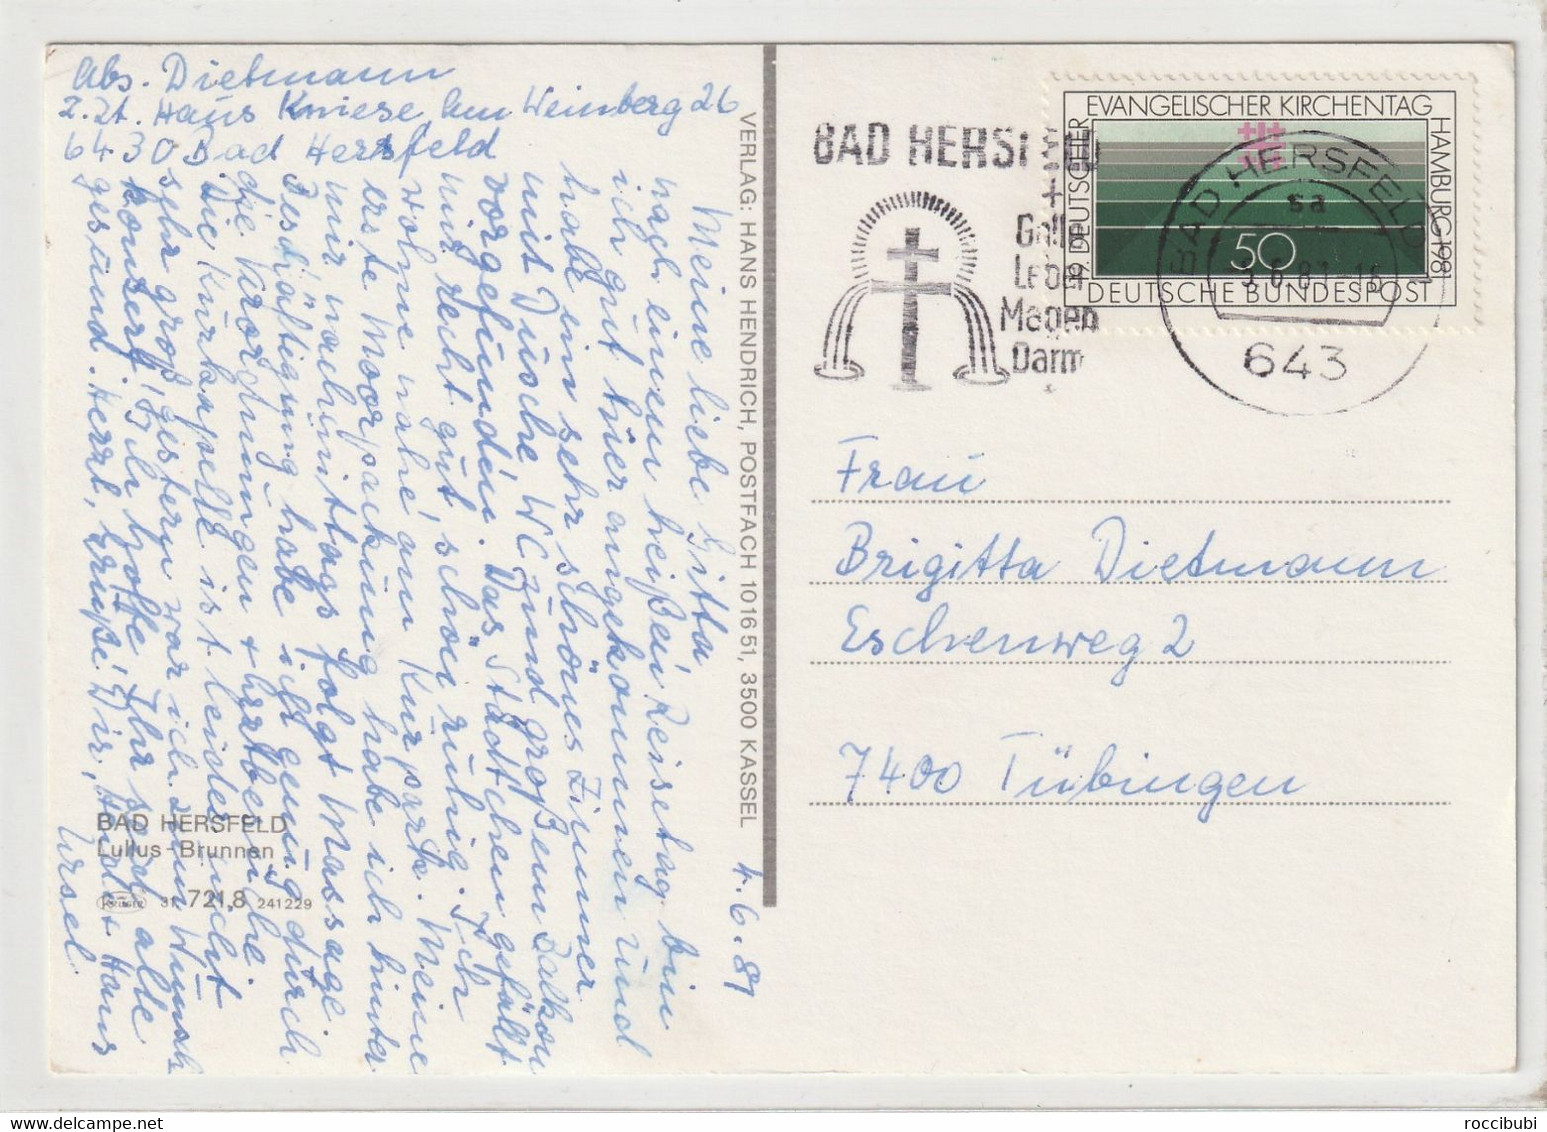 Abs. Dietmann
z. Zt. Haus Kniese, Am Weinberg 26
6430 Bad Hersfeld
4.6.81
Meine liebe Gitta
nach einem heißen Reisetag bin
ich gut hier angekommen und
habe ein sehr schönes Zimmer
mit Dusche, WC und großem Balkon
vorgefunden. Das Städtchen gefällt
mir recht gut, schön ruhig. Ich
wohne nahe am Kurpark. Meine
erste Moorpackung habe ich hinter
mir nachmittags folgt Massage.
Beschäftigung habe ich genug durch
die Verordnungen + Arztbesuche.
Die Kurkapelle ist leider nicht
sehr groß, gestern war ich zum Wunsch
konzert, Ihr seid alle
gesund. Herzl. Grüße Dir, + Hans
Ursel
BAD HERSFELD
Lullus-Brunnen
31 721,8 241229
VERLAG: HANS HENDRICH, POSTFACH 101651, 3500 KASSEL
BAD HERSFELD
Galle
Leber
Magen
Darm
19. DEUTSCHER EVANGELISCHER KIRCHENTAG HAMBURG 1981
50
DEUTSCHE BUNDESPOST
BAD HERSFELD
sa
643
Frau
Brigitta Dietmann
Eschenweg 2
7400 Tübingen
roccibubi